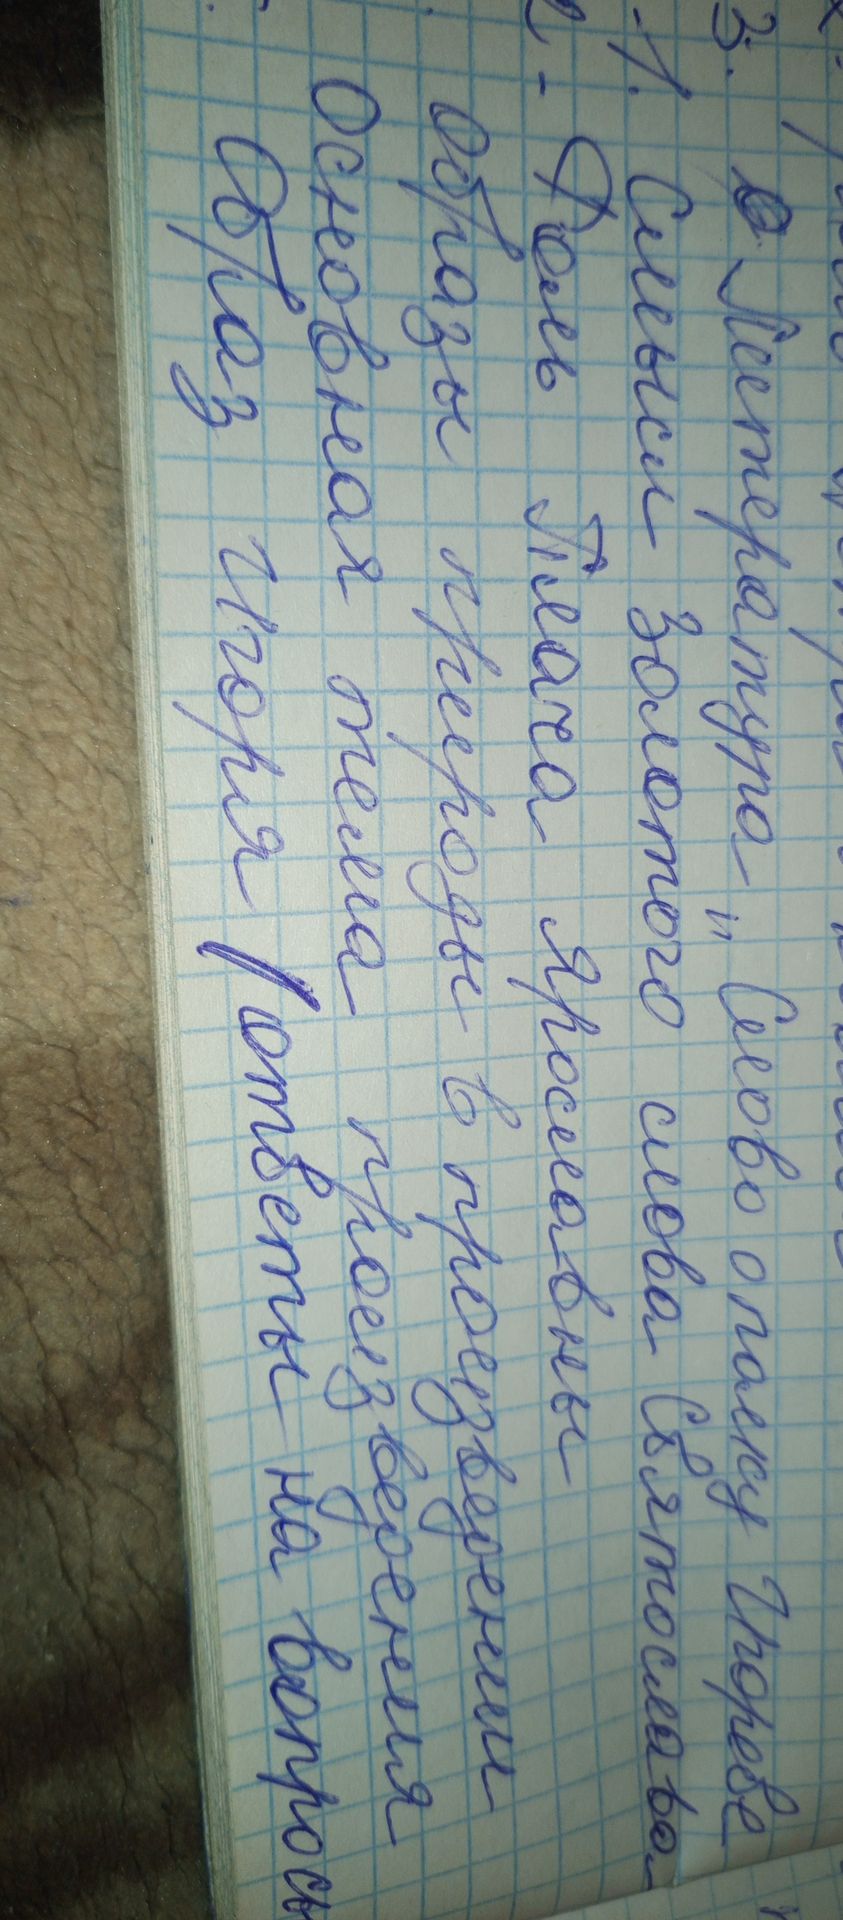 3. Литература "Слово о полку Игореве
1. Смысл золотого слова Святослава
2 - Роль Плача Ярославны
Образы природы в произведении
Основная тема произведения
Образ Игоря (ответы на вопросы